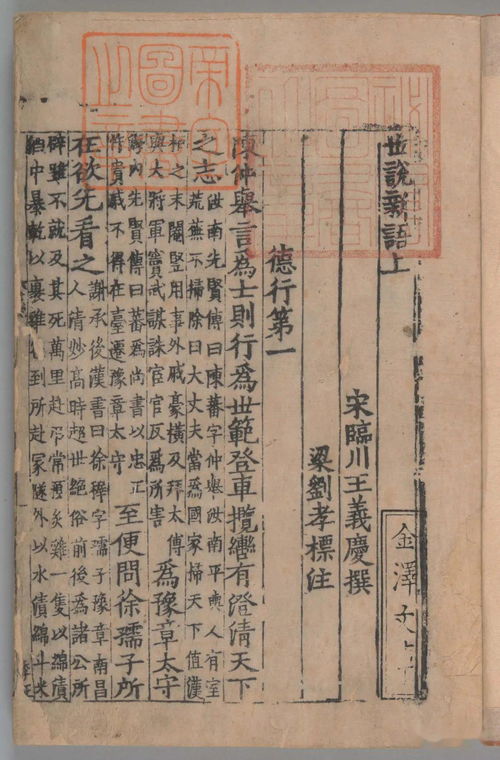 帝室圖書之章
世說新語上
金澤文
宋臨川王義慶撰
梁劉孝標注
德行第一
陳仲舉言為士則行為世範登車攬轡有澄清天下
之志
汝南先賢傳曰陳蕃字仲舉汝南平輿人有室
荒蕪不掃除曰大丈夫當為國家掃天下值漢
桓之末閹豎用事外戚豪橫及拜太傅
與大將軍竇武謀誅宦官反為所害
為豫章太守
海內先賢傳曰蕃為尚書以忠正
忤貴戚不得在臺遷豫章太守
至便問徐孺子所
在欲先看之
謝承後漢書曰徐稺字孺子豫章南昌
人清妙高時超世絕俗前後為諸公所
辟雖不就及其死萬里赴弔常預炙雞一隻以綿漬
酒中暴乾以裹雞到所赴冢隧外以水漬綿斗米